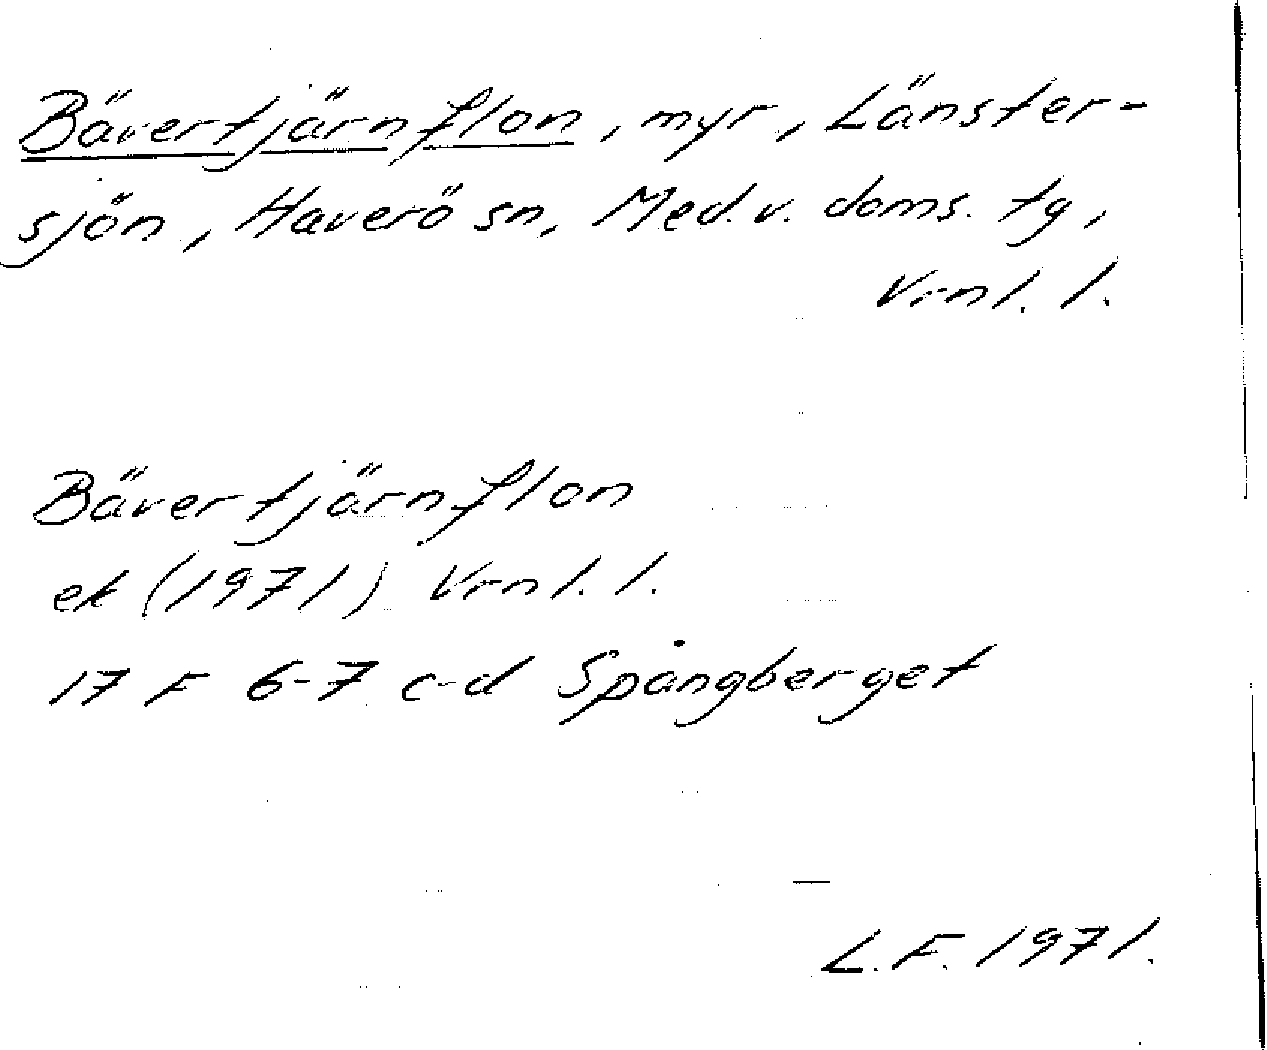 Bävertjärnflon, myr, Länster-
sjön, Haverö sn, Med. v. doms. tg,
Vrnl. l.
Bävertjärnflon
ek (1971) Vrnl. l.
17 F 6-7 c-d Spångberget
L.F. 1971.